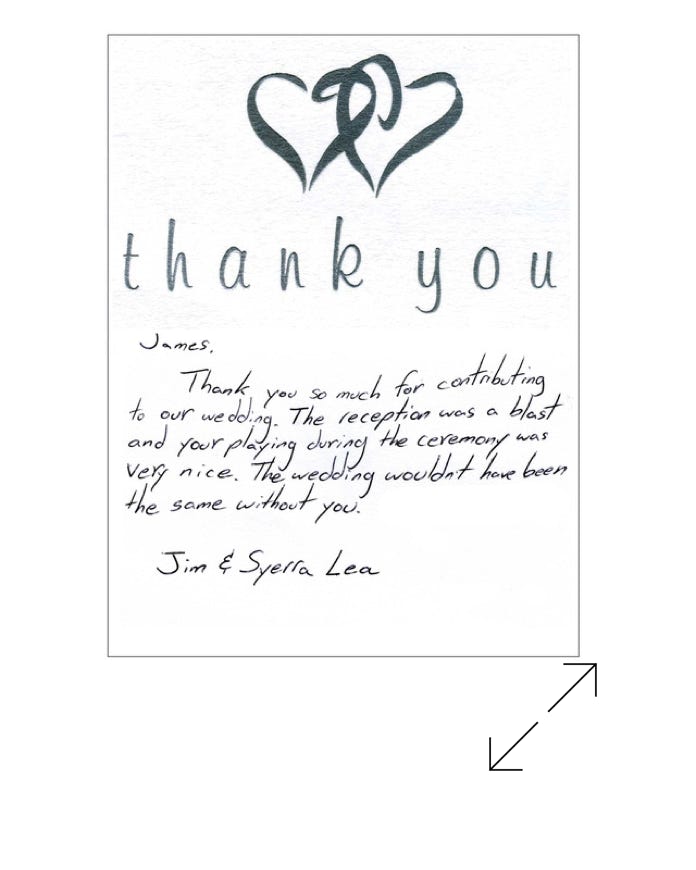 thank you
James,
Thank you so much for contributing
to our wedding. The reception was a blast
and your playing during the ceremony was
very nice. The wedding wouldnt have been
the same without you.
Jim & Syerra Lea